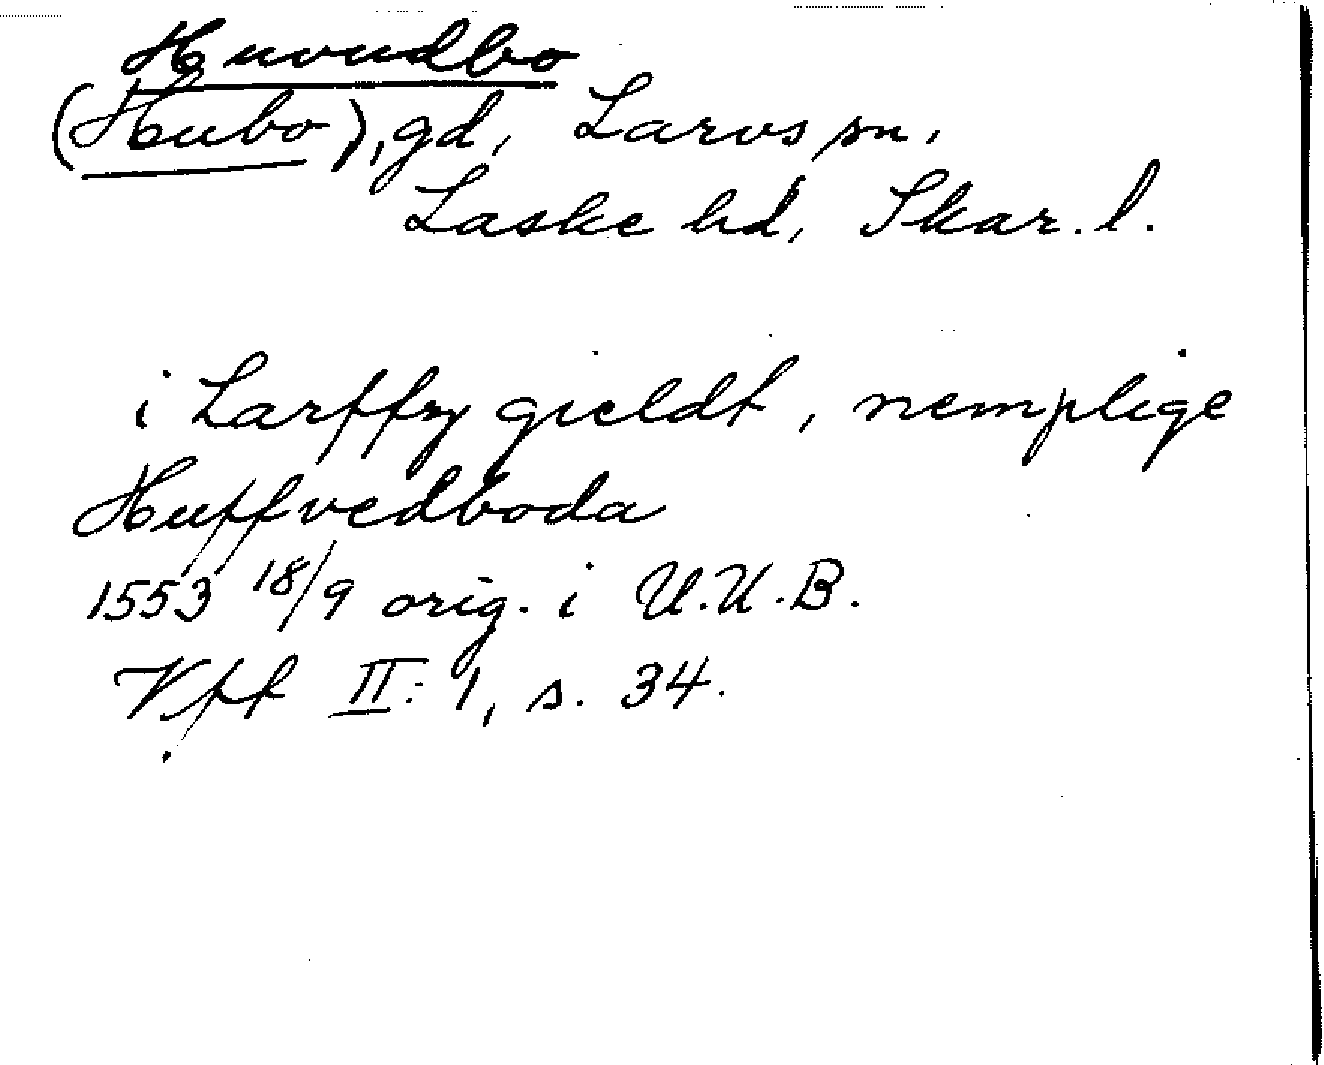 Huvudbo
(Hubo), gd, Larvs sn,
Laske hd, Skar. l.
i Larffzy gieldt, nemplige
Huffvedboda
1553 18/9 orig. i U.U.B.
Vff II: 1, s. 34.